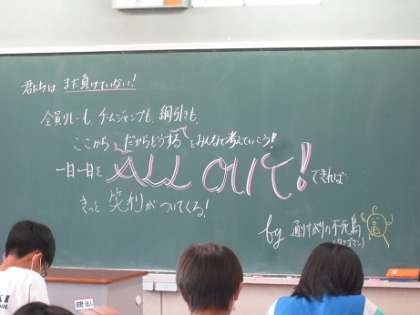 君たちは まだ負けていない!
全員リレーも、チームジャンプも、綱引きも、
ここから「だからどうする」をみんなで考えていこう!
一日一日を ALL OUT! できれば
きっと 笑利がついてくる!
by 通りすがりの不死鳥